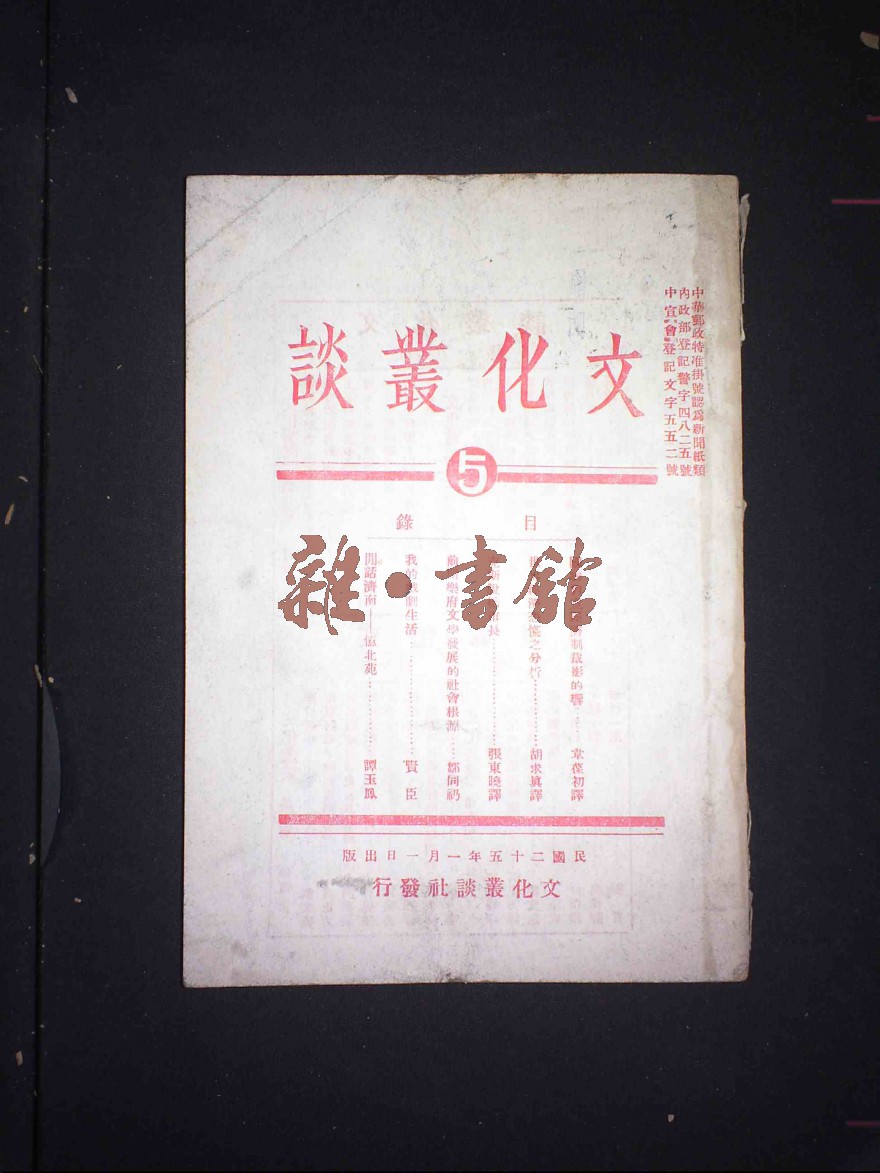 中華郵政特准掛號認爲新聞紙類
內政部登記警字四八二五號
中宣會登記文字五五二號
文化叢談
5
目錄
制裁影的響……韋葆初譯
之分析……胡求眞譯
長……張東曉譯
樂府文學發展的社會根源……鄒何礽
我的戲劇生活……賢臣
閒話濟南——憶北苑……譚玉鳳
雜·書館
民國二十五年一月一日出版
文化叢談社發行